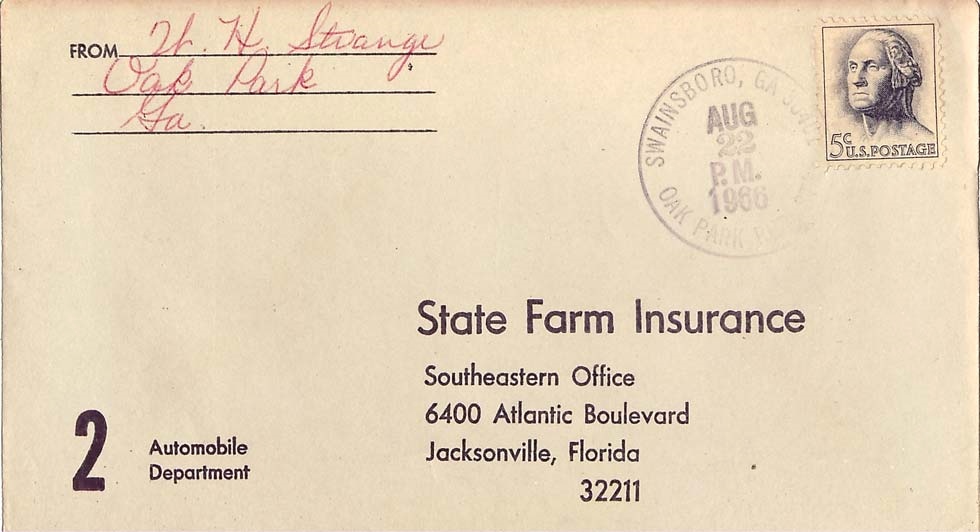 FROM W. H. Strange
Oak Park
Ga.
SWAINSBORO, GA
AUG
22
P.M.
1966
OAK PARK
5¢ U.S.POSTAGE
State Farm Insurance
Southeastern Office
6400 Atlantic Boulevard
Jacksonville, Florida
32211
2
Automobile
Department